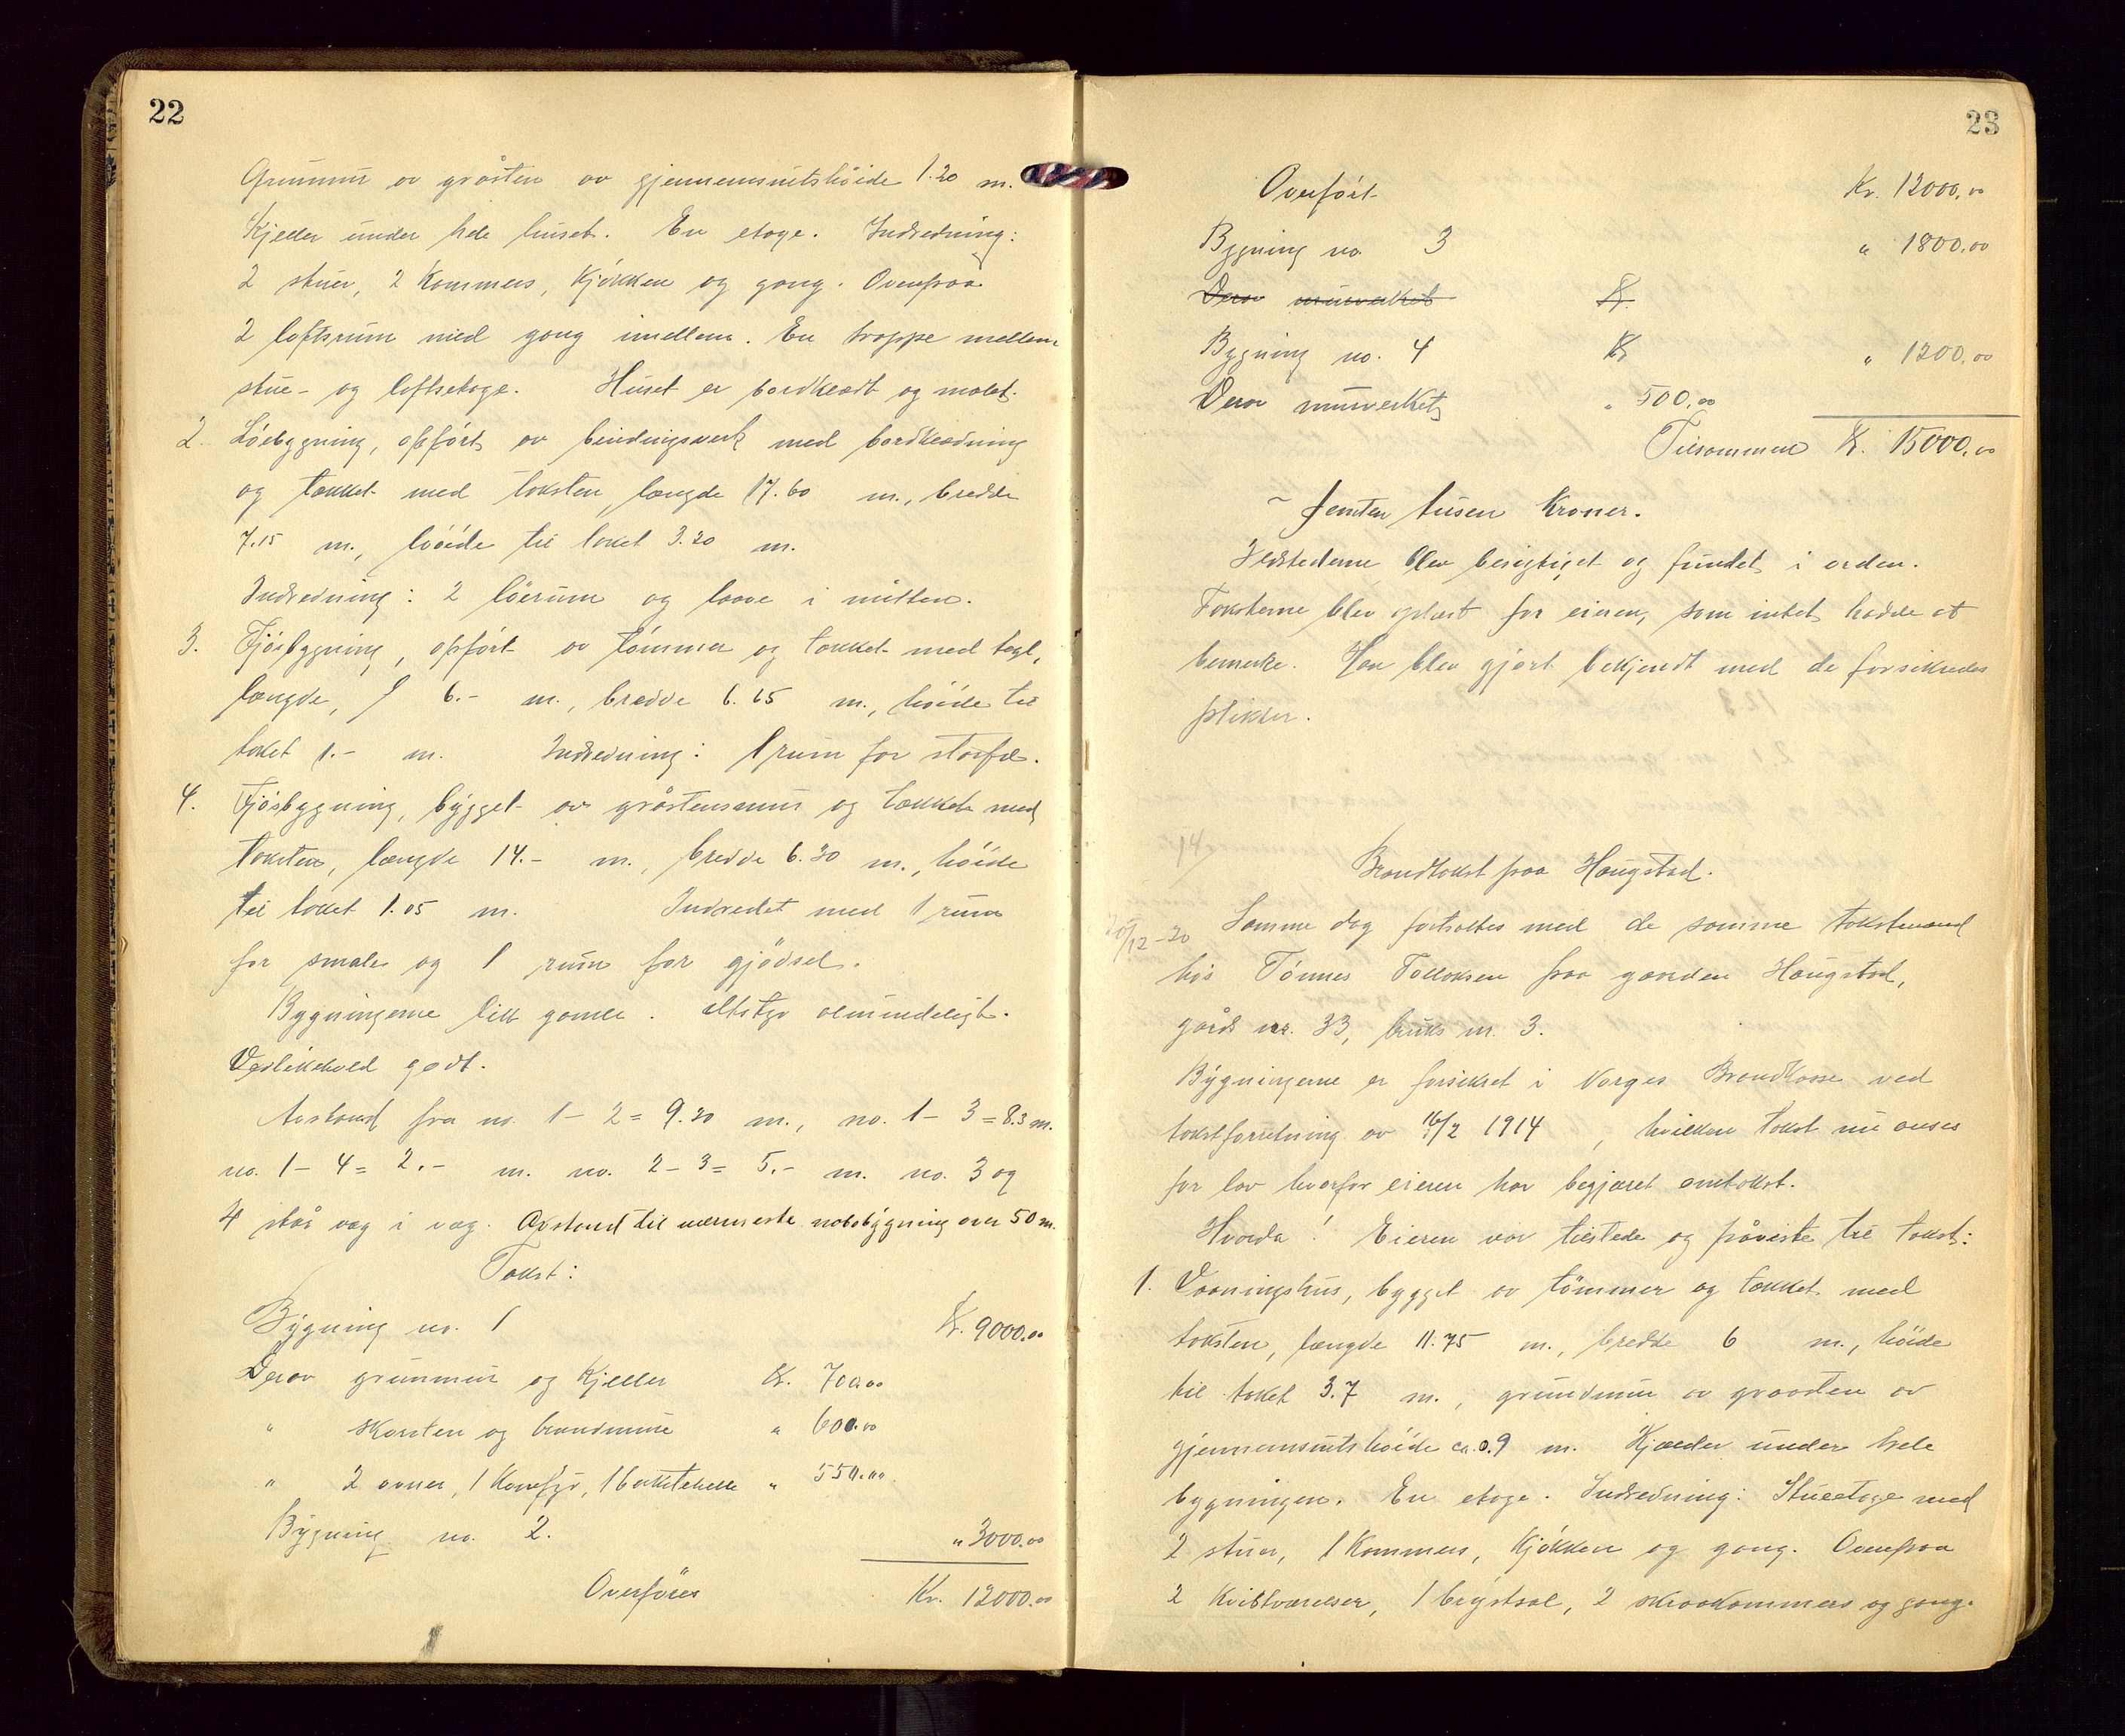 22
Grunmur av gråsten av gjennemsnitshöide 1.20 m.
Kjeller under hele huset. En etage. Indredning:
2 stuer, 2 Kammers, Kjökken og gang. Ovenpaa
2 loftsrum med gang imellem. En trappe mellem
stue- og loftsetage. Huset er bordklædt og malet.
2. Löebygning, opfört av bindingsverk med bordklædning
og tækket med taksten, længde 17.60 m., bredde
7.15 m., höide til taket 3.20 m.
Indredning: 2 löerum og laave i mitten.
3. Fjösbygning, opfört av tömmer og tækket med tegl,
længde, 6.- m., bredde 6.65 m., höide til
taket 1.- m. Indredning: 1 rum for storfæ.
4. Fjösbygning, bygget av gråstensmur og tækket med
taksten, længde 14.- m., bredde 6.30 m., höide
til taket 1.05 m. Indredet med 1 rum
for smale og 1 rum for gjödsel.
Bygningerne litt gamle. Utstyr almindeligt.
Vedlikehold godt.
Avstand fra no. 1 - 2 = 9.20 m., no. 1 - 3 = 8.3 m.
no. 1 - 4 = 2.- m. no. 2 - 3 = 5.- m. no. 3 og
4 står væg i væg. Avstand til nærmeste nabobygning over 50 m.
Takst:
Bygning no. 1 Kr. 9000.00
Derav grunmur og Kjeller Kr. 700.00
" skorsten og brandmure " 600.00
" 2 ovner, 1 Komfyr, 1 baketakelle " 550.00
Bygning no. 2. " 3000.00
Overföres Kr. 12000.00
23
Overfört Kr. 12000.00
Bygning no. 3 " 1800.00
Derav murverket Kr.
Bygning no. 4 Kr " 1200.00
Derav murverket " 500.00
Tilsammen Kr. 15000.00
~ Femten tusen Kroner.
Ildstederne blev besigtiget og fundet i orden.
Taksterne blev oplæst for eieren, som intet hadde at
bemerke. Han blev gjort bekjendt med de forsikredes
plikter.
14/
Brandtakst paa Haugstad.
20/12-20 Samme dag fortsattes med de samme takstmænd
hos Tönnes Tollaksen paa gaarden Haugstad,
gårds nr. 33, bruks nr. 3.
Bygningerne er forsikret i Norges Brandkasse ved
takstforretning av 16/2 1914, hvilken takst nu anses
for lav hvorfor eieren har begjæret omtakst.
Hvorda! Eieren var tilstede og påviste til takst:
1. Vaaningshus, bygget av tömmer og tækket med
taksten, længde 11.75 m., bredde 6 m., höide
til taket 3.7 m., grundmur av graasten av
gjennemsnitshöide ca. 0.9 m. Kjælder under hele
bygningen. En etage. Indredning: Stueetage med
2 stuer, 1 Kammers, Kjökken og gang. Ovenpaa
2 Kvistværelser, 1 brystsal, 2 skraakammers og gang.